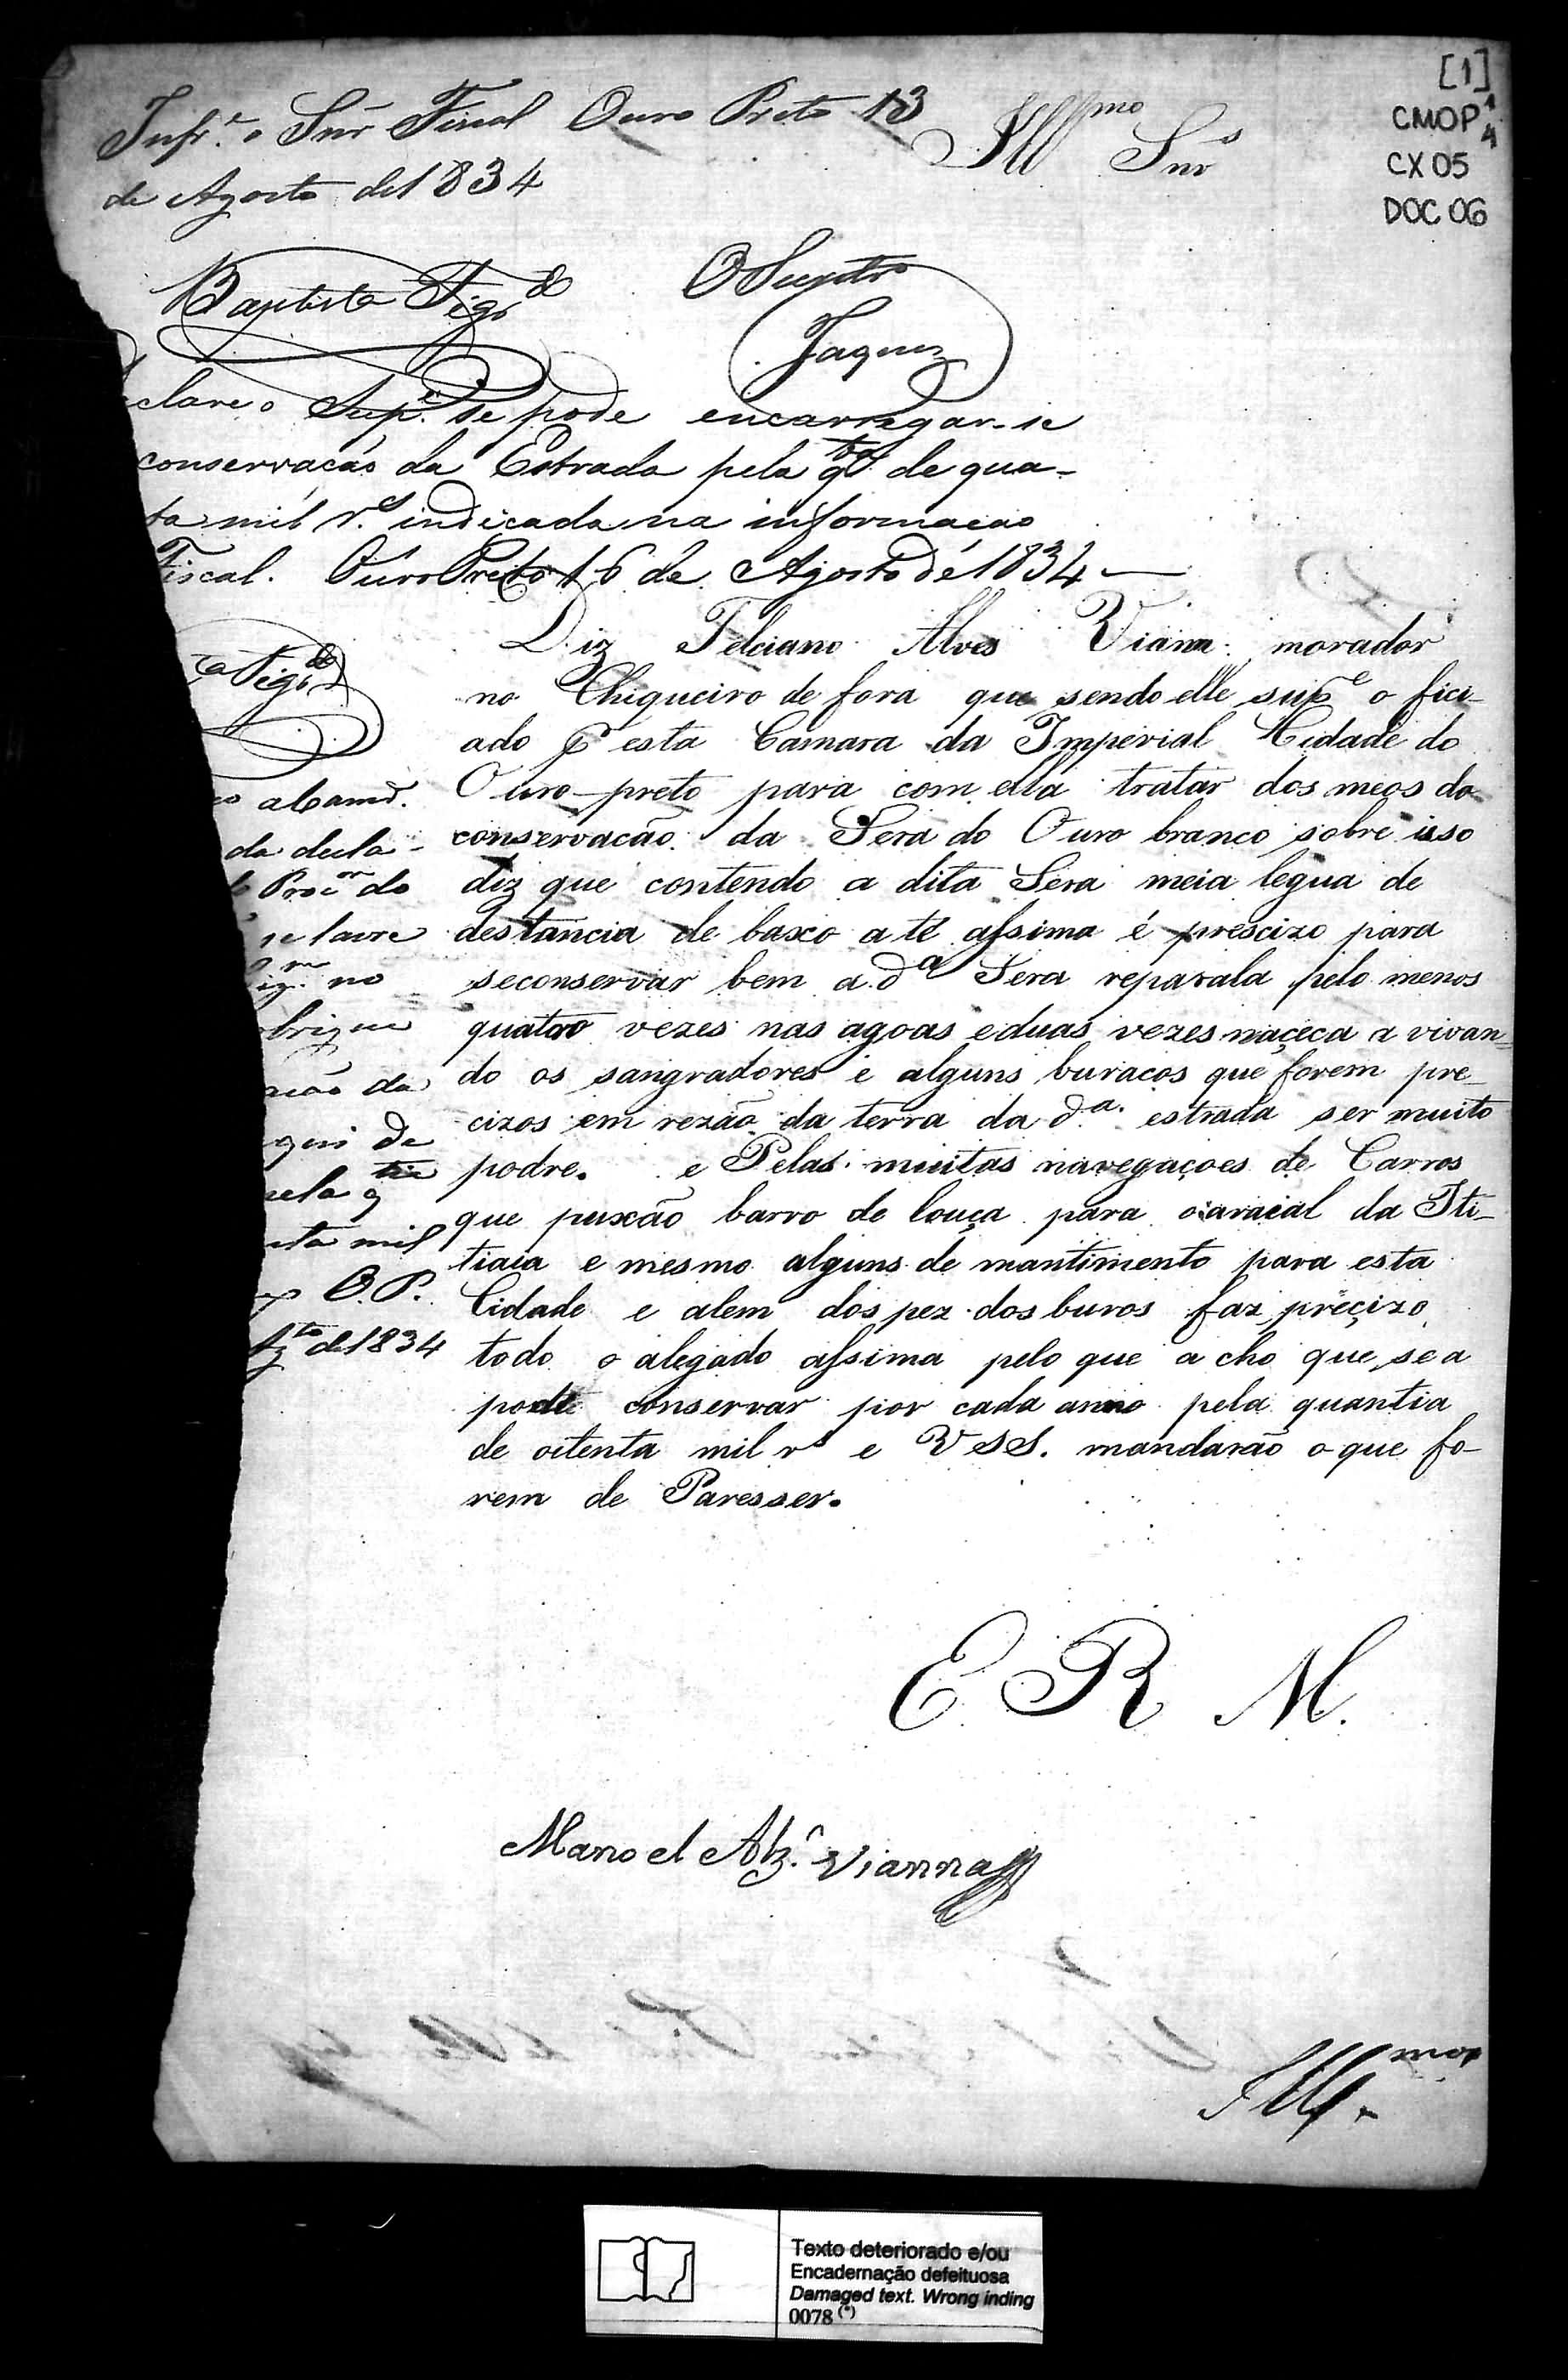 [1]
CMOP
CX 05
DOC 06
Infr.e o Snr Fiscal Ouro Preto 13
de Agosto de 1834
Ill mo Snr s
Baptista Figdo
O Secretro
Jaquez
clare o Sup.e se pode encarregar-se
conservacáo da Estrada pela qtia de qua-
ta mil r.s indicada na informacao
Fiscal. Ouro Preto 16 de Agosto de 1834
Figdo
Diz Feliciano Alves Viana morador
no Chiqueiro de fora que sendo elle supe o fici-
ado pr esta Camara da Imperial Cidade do
Ouro-preto para com ella tratar dos meos da
conservacão da Sera do Ouro branco sobre isso
diz que contendo a dita Sera meia legua de
destancia de baxo a té assima é prescizo para
seconservar bem a da Sera reparala pelo menos
quatro vezes nas agoas e duas vezes naçeca a vivan=
do os sangradores e alguns buracos que forem pre-
cizos em rezão da terra da da. estrada ser muito
podre. e Pelas muitas navegaçoes de Carros
que puxão barro de louça para o araial da Iti-
tiaia e mesmo alguns de mantimento para esta
Cidade e alem dos pez dos buros faz preçizo
todo o alegado assima pelo que a cho que se a
pode conservar por cada anno pela quantia
de oitenta mil rs e V SS. mandarão o que fo-
rem de Paresser.
a Camr.
da decla-
Procor do
se lavre
no
brigue
ção da
qui de
pela qtia
ta mil
O. P.
Agto de 1834
E R M.
Manoel Alz. Vianna
Ill mos
Texto deteriorado e/ou
Encadernação defeituosa
Damaged text. Wrong inding
0078 (*)